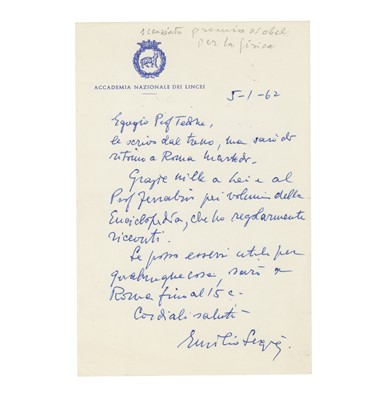 scienziato premio Nobel
per la fisica
ACCADEMIA NAZIONALE DEI LINCEI
5-1-62
Egregio Prof Tedone,
le scrivo dal treno, ma sarò di
ritorno a Roma martedì.
Grazie mille a Lei e al
Prof Ferrabino pei volumi della
Enciclopedia, che ho regolarmente
ricevuti.
Se posso esserLe utile per
qualunque cosa, sarò a
Roma fino al 15 c.
Cordiali saluti
Emilio Segrè.